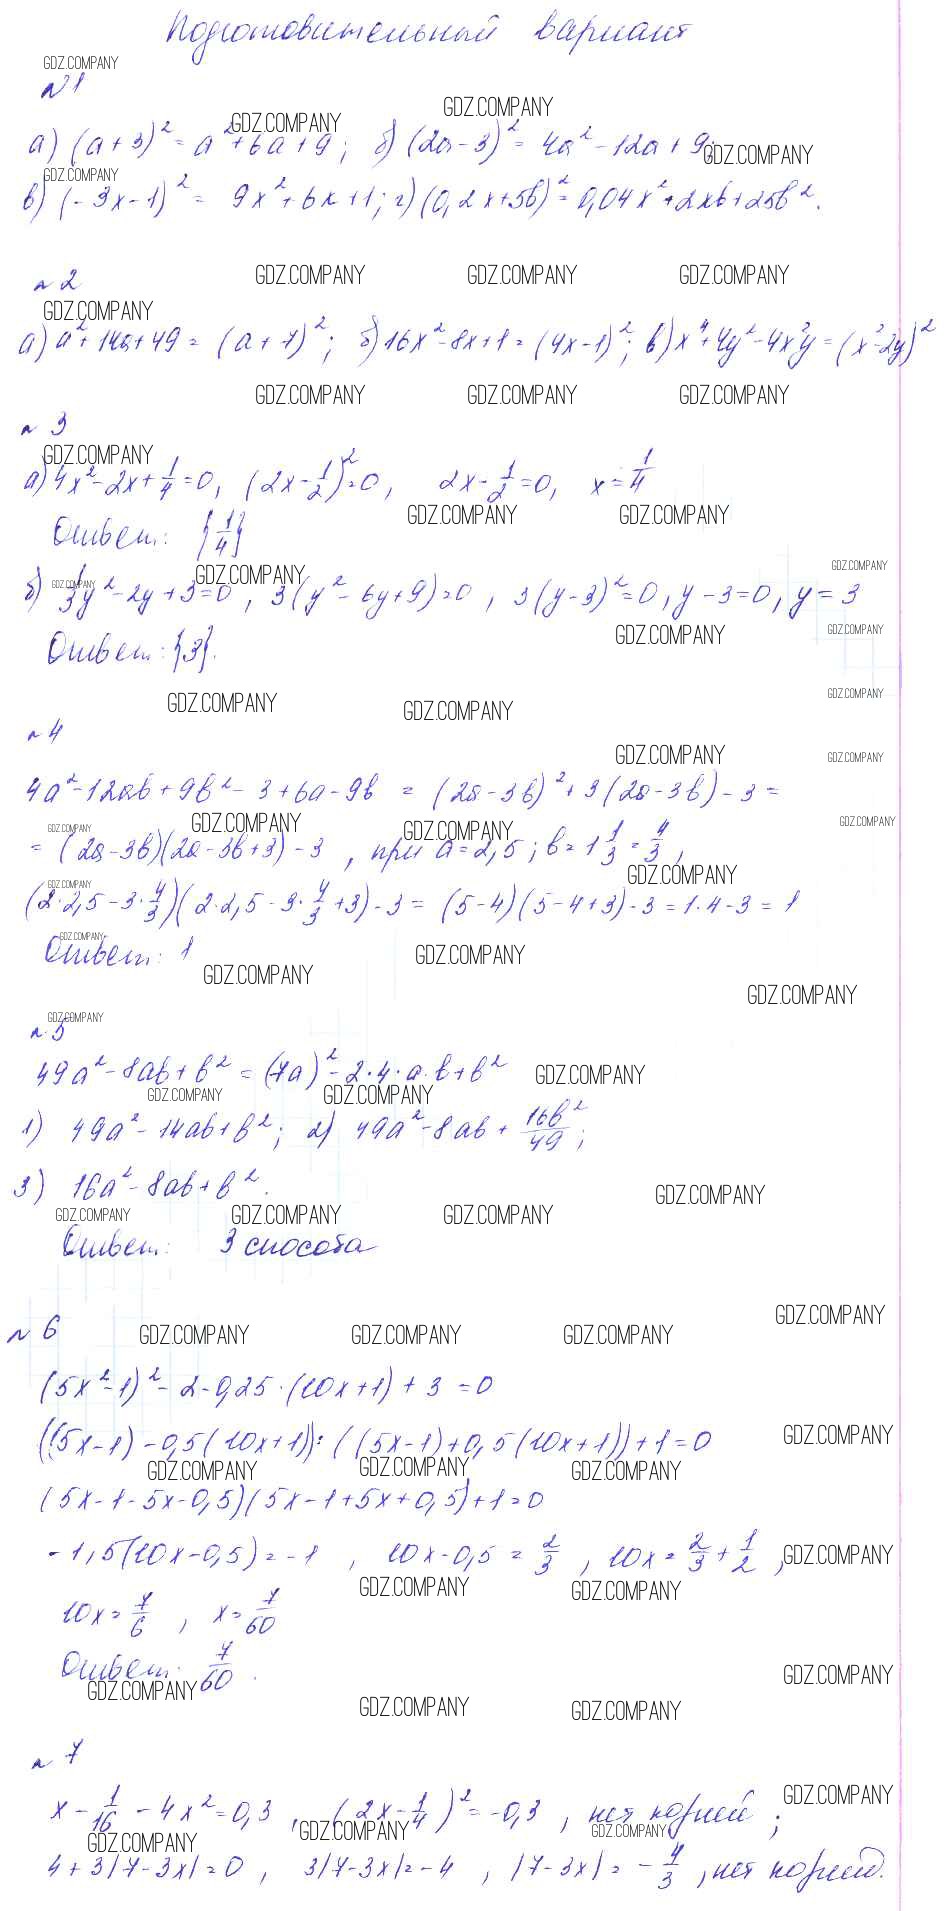 Подготовительный вариант
GDZ.COMPANY
№1
GDZ.COMPANY GDZ.COMPANY
а) (a+3)² = a²+6a+9; б) (2a-3)² = 4a²-12a+9;
GDZ.COMPANY GDZ.COMPANY
в) (-3x-1)² = 9x²+6x+1; г) (0,2x+5b)² = 0,04x²+2xb+25b².
№2 GDZ.COMPANY GDZ.COMPANY GDZ.COMPANY
GDZ.COMPANY
а) a²+14a+49 = (a+7)²; б) 16x²-8x+1 = (4x-1)²; в) x⁴+4y²-4x²y = (x²-2y)²
GDZ.COMPANY GDZ.COMPANY GDZ.COMPANY
№3
GDZ.COMPANY
а) 4x²-2x+1/4=0, (2x-1/2)²=0, 2x-1/2=0, x=1/4
GDZ.COMPANY GDZ.COMPANY
Ответ: {1/4}
GDZ.COMPANY GDZ.COMPANY GDZ.COMPANY
б) 1/3y²-2y+3=0, 3(y²-6y+9)=0, 3(y-3)²=0, y-3=0, y=3
GDZ.COMPANY GDZ.COMPANY
Ответ: {3}.
GDZ.COMPANY GDZ.COMPANY GDZ.COMPANY
№4
GDZ.COMPANY GDZ.COMPANY
4a²-12ab+9b²-3+6a-9b = (2a-3b)²+3(2a-3b)-3=
GDZ.COMPANY GDZ.COMPANY GDZ.COMPANY GDZ.COMPANY
=(2a-3b)(2a-3b+3)-3, при a=2,5; b=1 1/3=4/3,
GDZ.COMPANY GDZ.COMPANY
(2·2,5-3·4/3)(2·2,5-3·4/3+3)-3= (5-4)(5-4+3)-3=1·4-3=1
GDZ.COMPANY GDZ.COMPANY
Ответ: 1
GDZ.COMPANY GDZ.COMPANY
GDZ.COMPANY
№5
49a²-8ab+b² = (7a)²-2·4·a·b+b² GDZ.COMPANY
GDZ.COMPANY GDZ.COMPANY
1) 49a²-14ab+b²; 2) 49a²-8ab+16b²/49;
3) 16a²-8ab+b².
GDZ.COMPANY
GDZ.COMPANY GDZ.COMPANY GDZ.COMPANY
Ответ: 3 способа
GDZ.COMPANY
№6 GDZ.COMPANY GDZ.COMPANY GDZ.COMPANY
(5x²-1)²-2-0,25·(10x+1)+3=0
((5x-1)-0,5(10x+1)):((5x-1)+0,5(10x+1))+1=0 GDZ.COMPANY
GDZ.COMPANY GDZ.COMPANY GDZ.COMPANY
(5x-1-5x-0,5)(5x-1+5x+0,5)+1=0
-1,5(10x-0,5)=-1, 10x-0,5=2/3, 10x=2/3+1/2, GDZ.COMPANY
GDZ.COMPANY GDZ.COMPANY
10x=7/6, x=7/60
Ответ: 7/60. GDZ.COMPANY
GDZ.COMPANY GDZ.COMPANY GDZ.COMPANY
№7
GDZ.COMPANY
x-1/16-4x²=0,3, (2x-1/4)²=-0,3, нет корней;
GDZ.COMPANY GDZ.COMPANY GDZ.COMPANY
4+3|7-3x|=0, 3|7-3x|=-4, |7-3x|=-4/3, нет корней.